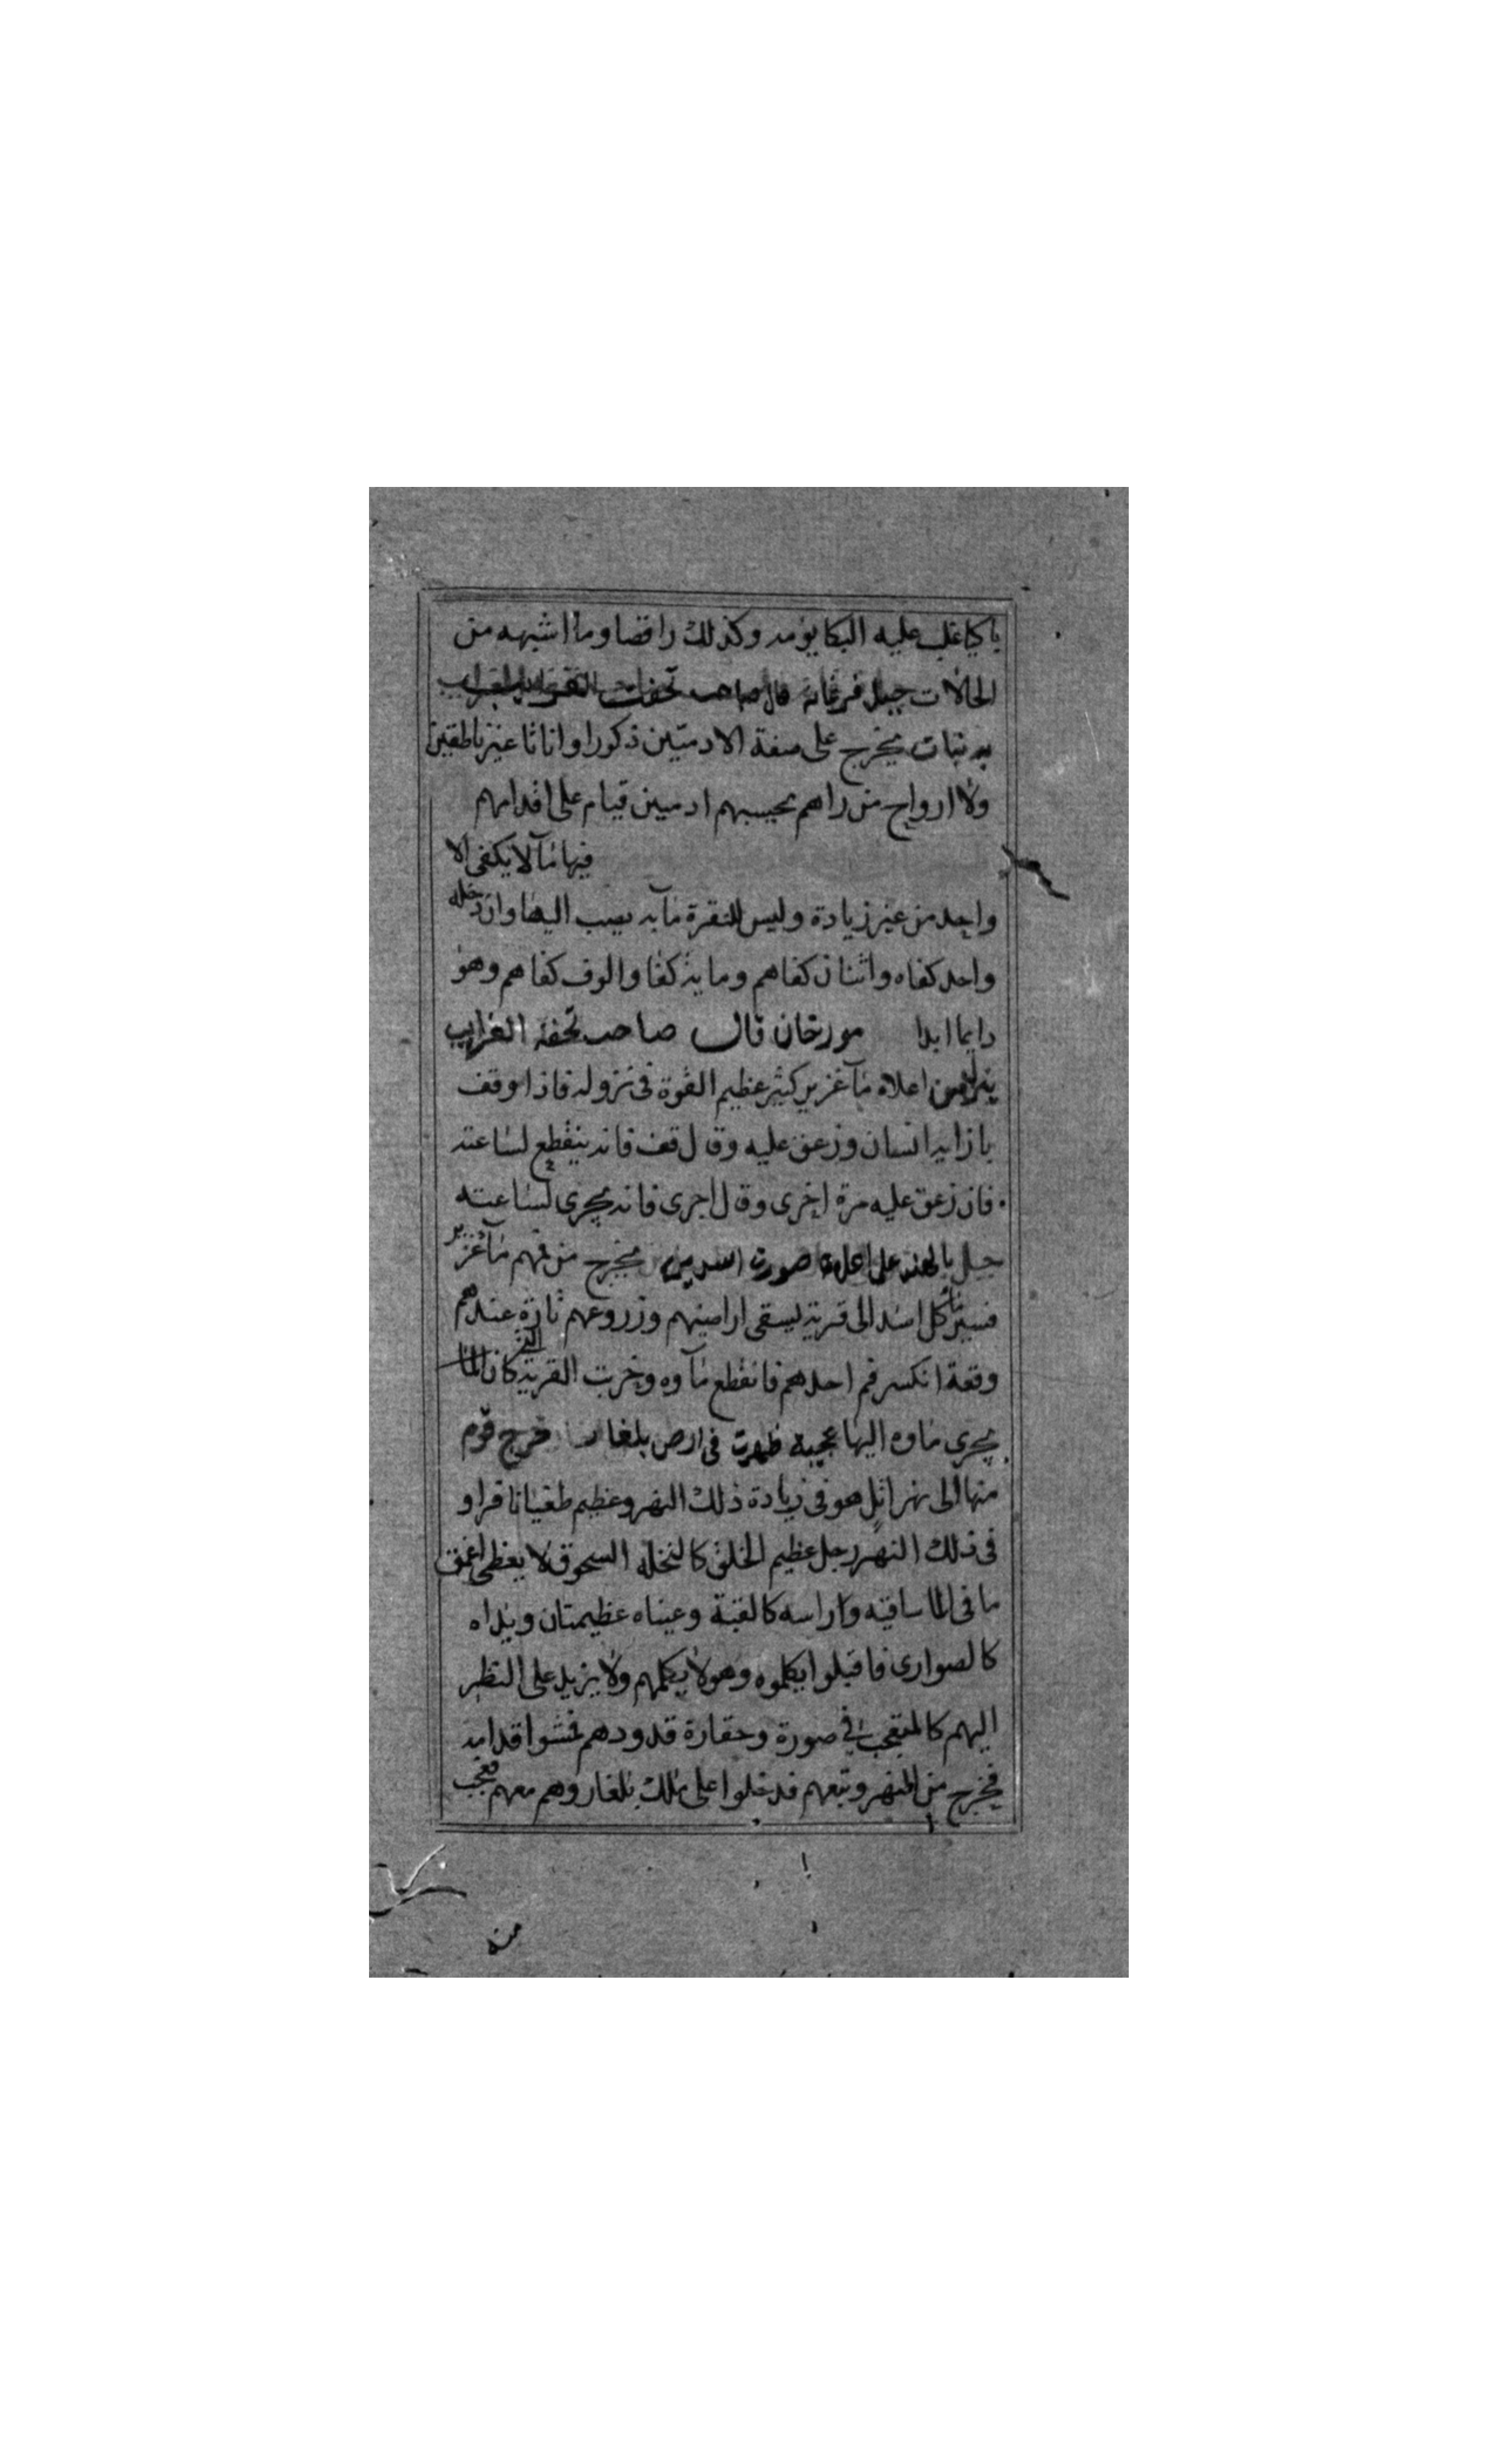 باكيا غلب عليه البكا يومه وكذلك راقصا وما اشبهه من
الحالات جبل فرغانة قال صاحب تحفت الغرايب
به نبات يخرج على صفة الادميين ذكورا واناثا غير ناطقين
ولا ارواح من راهم يحسبهم ادميين قيام على اقدامهم
فيها مآ لا يكفى الا
واحد من غير زيادة وليس للنقرة مآ به يصب اليها وان دخله
واحد كفاه واثنان كفاهم وماية كفا والوف كفاهم وهو
دايما ابدا مورخان قال صاحب تحفة الغرايب
ينزل من اعلاه مآ غزير كثير عظيم القوة فى نزوله فاذا وقف
بازايه انسان وزعق عليه وقال قف فانه ينقطع لساعته
فان زعق عليه مرة اخرى وقال اجرى فانه يجرى لساعته
جبل بالهند على اعلاه صورت اسدين يخرج من فمهم مآ غزير
فسير كل اسد الى قرية ليسقى اراضيهم وزروعهم ثارة عندهم
وقعة انكسر فم احدهم فانقطع مآوه وخربت القرية التى كان الما
يجرى ماوه اليها عجيبه ظهرت فى ارض بلغار خرج قوم
منها الى نهر اتل هو فى زيادة ذلك النهر وعظيم طغيانا فراو
فى ذلك النهر رجل عظيم الخلق كالنخلة السحوق لا يغطى اعمق
ما فى الما ساقيه وارا راسه كالقبة وعيناه عظيمتان ويداه
كالصوارى فاقبلوا يكلموه وهو لا يكلمهم ولا يزيد على النظر
اليهم كالمتعجب فى صورة وحقارة قدودهم فمشوا قدامه
فخرج من النهر وتبعهم فدخلوا على ملك بلغار وهم معهم فعجب
منه